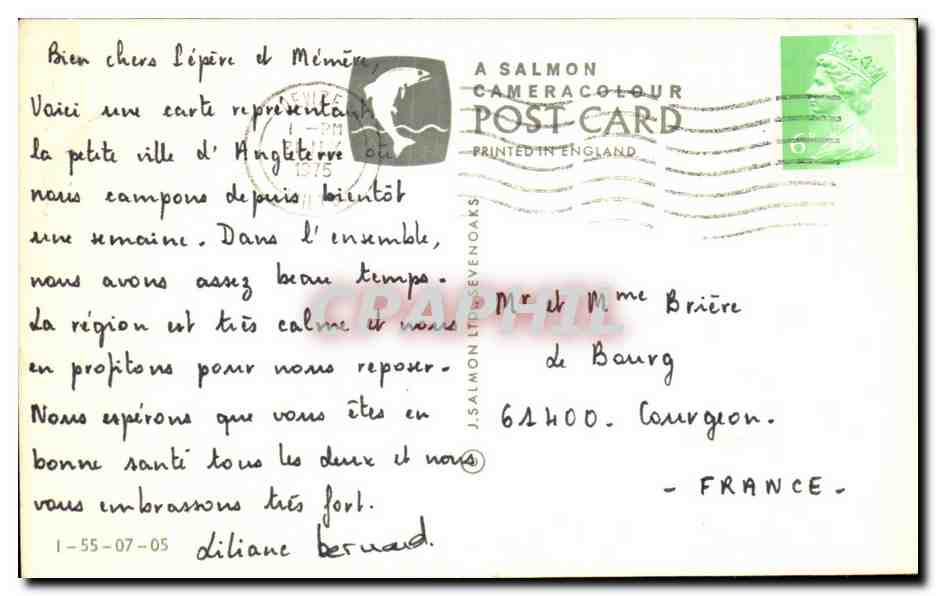 Bien chers Pépère et Mémère,
Voici une carte représentant
la petite ville d'Angleterre où
nous campons depuis bientôt
une semaine. Dans l'ensemble,
nous avons assez beau temps.
La région est très calme et nous
en profitons pour nous reposer.
Nous espérons que vous êtes en
bonne santé tous les deux et nous
vous embrassons très fort.
Liliane Bernard.
1-55-07-05
A SALMON
CAMERACOLOUR
POST CARD
PRINTED IN ENGLAND
J. SALMON LTD. SEVENOAKS
DEVIZES
1-PM
1975
6
Mr et Mme Brière
Le Bourg
61400. Courgeon.
- FRANCE -
CPAPHIL